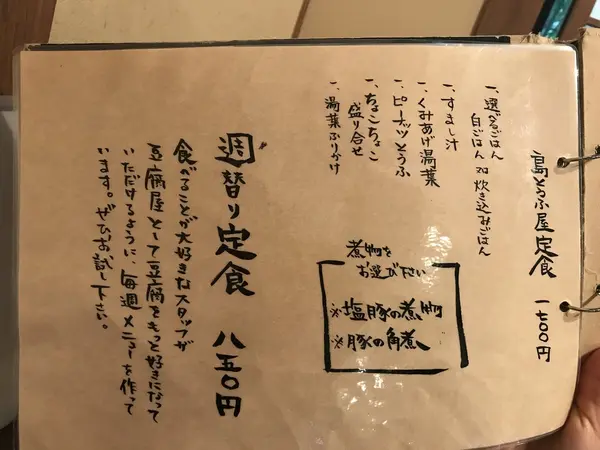 島とうふ屋定食 一七〇〇円
一、選べるごはん
白ごはん or 炊き込みごはん
一、すまし汁
一、くみあげ湯葉
一、ピーナッツとうふ
一、ちょこちょこ
盛り合せ
一、湯葉ふりかけ
煮物を
お選び下さい
※塩豚の煮物
※豚の角煮
週替り定食 八五〇円
食べることが大好きなスタッフが
豆腐屋として豆腐をもっと好きになって
いただけるように、毎週メニューを作って
います。ぜひお試し下さい。